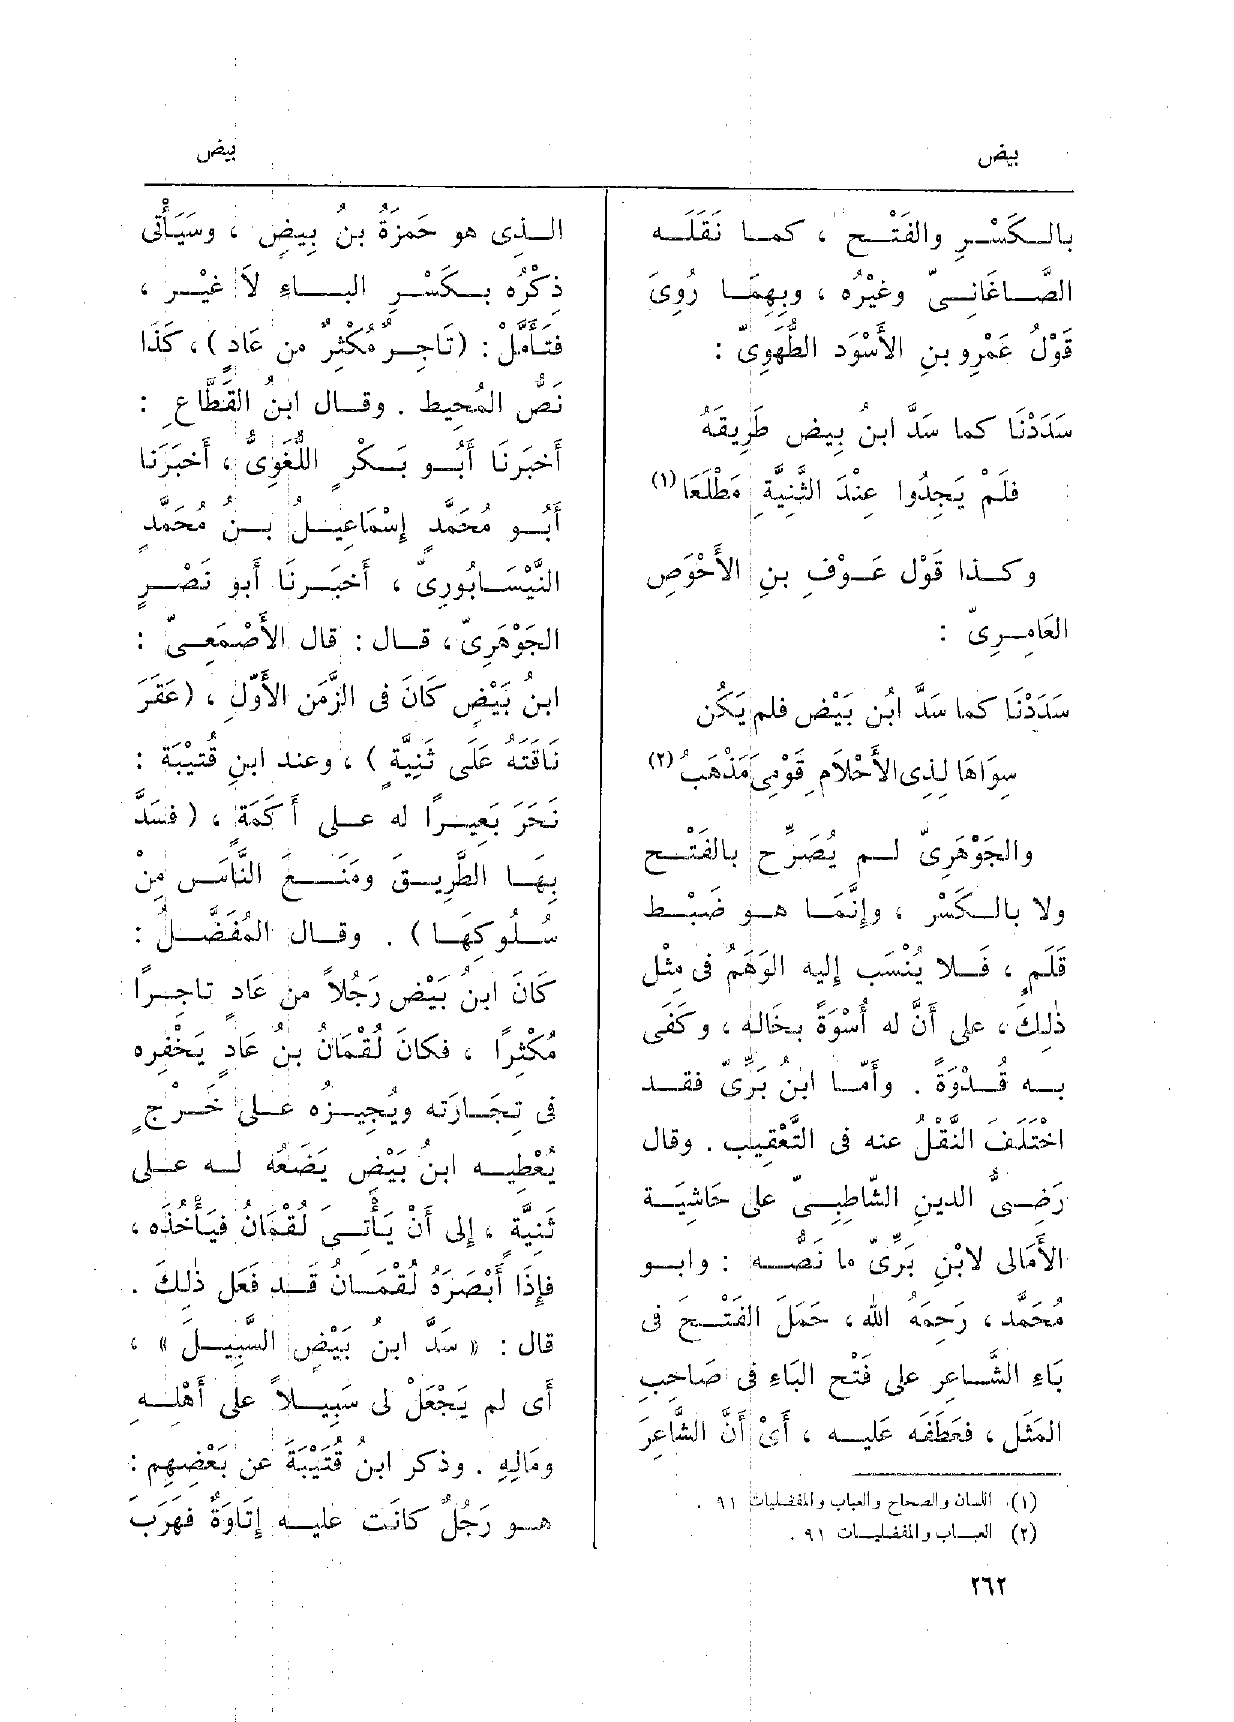 بيض
بيض
بالكَسْرِ والفَتْح ، كما نَقَلَه
الصَّاغَانىّ وغيْرُه ، وبِهِمَا رُوِىَ
قَوْلُ عَمْرو بنِ الأَسْوَد الطُّهَوِىّ :
سَدَدْنَا كما سَدَّ ابنُ بِيض طَرِيقَهُ
فلَمْ يَجِدُوا عِنْدَ الثَّنِيَّةِ مَطْلَعَا (١)
وكذا قَوْل عَوْف بنِ الأَحْوَصِ
العَامِرِىّ :
سَدَدْنَا كما سَدَّ ابْنُ بَيْض فلم يَكُن
سِوَاهَا لِذِى الأَحْلَامِ قَوْمِىَ مَذْهَبُ (٢)
والجَوْهَرِىّ لم يُصَرِّح بالفَتْح
ولا بالكَسْر ، وإِنَّمَا هو ضَبْط
قَلَمٍ ، فَلا يُنْسَب إليه الوَهَمُ فى مِثْل
ذٰلِكَ ، على أَنَّ له أُسْوَةً بخَاله ، وكَفَى
به قُدْوَةً . وأَمّا ابنُ بَرِّىّ فقد
اخْتَلَفَ النَّقْلُ عنه فى التَّعْقِيب . وقال
رَضِىُّ الدين الشّاطِبىّ على حَاشِيَة
الأَمَالى لابْنِ بَرِّىّ ما نَصُّه : وابو
مُحَمَّد ، رَحِمَهُ الله ، حَمَلَ الفَتْح فى
بَاءِ الشَّاعر على فَتْح البَاءِ فى صَاحِبِ
المَثَل ، فعَطَفَه عَلَيه ، أَىْ أَنَّ الشَّاعِرَ
(١) اللسان والصحاح والعباب والمفضليات ٩١ .
(٢) العباب والمفضليات ٩١ .
الذِى هو حَمزَةُ بنُ بِيضٍ ، وسَيَأْتى
ذكْرُه بكَسْرِ الباءِ لَا غَيْر ،
فتَأَمَّلْ : (تَاجِرٌ مُكْثِرٌ من عَادٍ) ، كَذَا
نَصُّ المُحِيط . وقال ابنُ القَطَّاعِ :
أَخبَرنَا أَبُو بَكْرٍ اللُّغَوِىُّ ، أَخبَرَنا
أَبُو مُحَمَّدٍ إِسْمَاعِيلُ بنُ مُحَمَّدٍ
النَّيْسَابُورِىّ ، أَخبَرنَا أَبو نَصْرٍ
الجَوْهَرِىّ ، قال : قال الأَصْمَعِىّ :
ابنُ بَيْضٍ كَانَ فى الزَّمَن الأَوَّلِ ، (عَقَرَ
نَاقَتَهُ عَلَى ثَنِيَّةٍ ) ، وعند ابنِ قُتَيْبَةَ :
نَحَرَ بَعِيراً له على أَكَمَةٍ ، (فسَدَّ
بِهَا الطَّرِيقَ ومَنَعَ النَّاسَ مِنْ
سُلُوكِهَا ) . وقال المُفَضَّلُ :
كَانَ ابنُ بَيْضٍ رَجُلاً من عَادٍ تاجِراً
مُكْثِراً ، فكانَ لُقْمَانُ بنُ عَادٍ يَخْفِره
فى تِجَارَتِه ويُجِيزه على خَرْجٍ
يُعْطِيه ابنُ بَيْض يَضَعُه له على
ثَنِيَّة ، إِلى أَنْ يَأْتِىَ لُقْمَانُ فيَأْخُذه ،
فإِذَا أَبْصَرَهُ لُقْمَانُ قد فَعَل ذٰلِكَ .
قال : « سَدَّ ابن بَيْضٍ السَّبِيل » ،
أَى لم يَجْعَلْ لى سَبِيلاً على أَهْلِه
ومَالِهِ . وذكر ابنُ قُتَيْبَةَ عن بَعْضِهِم :
هو رَجُلٌ كَانَت عليه إِتَاوَةٌ فهَرَب
٢٦٢